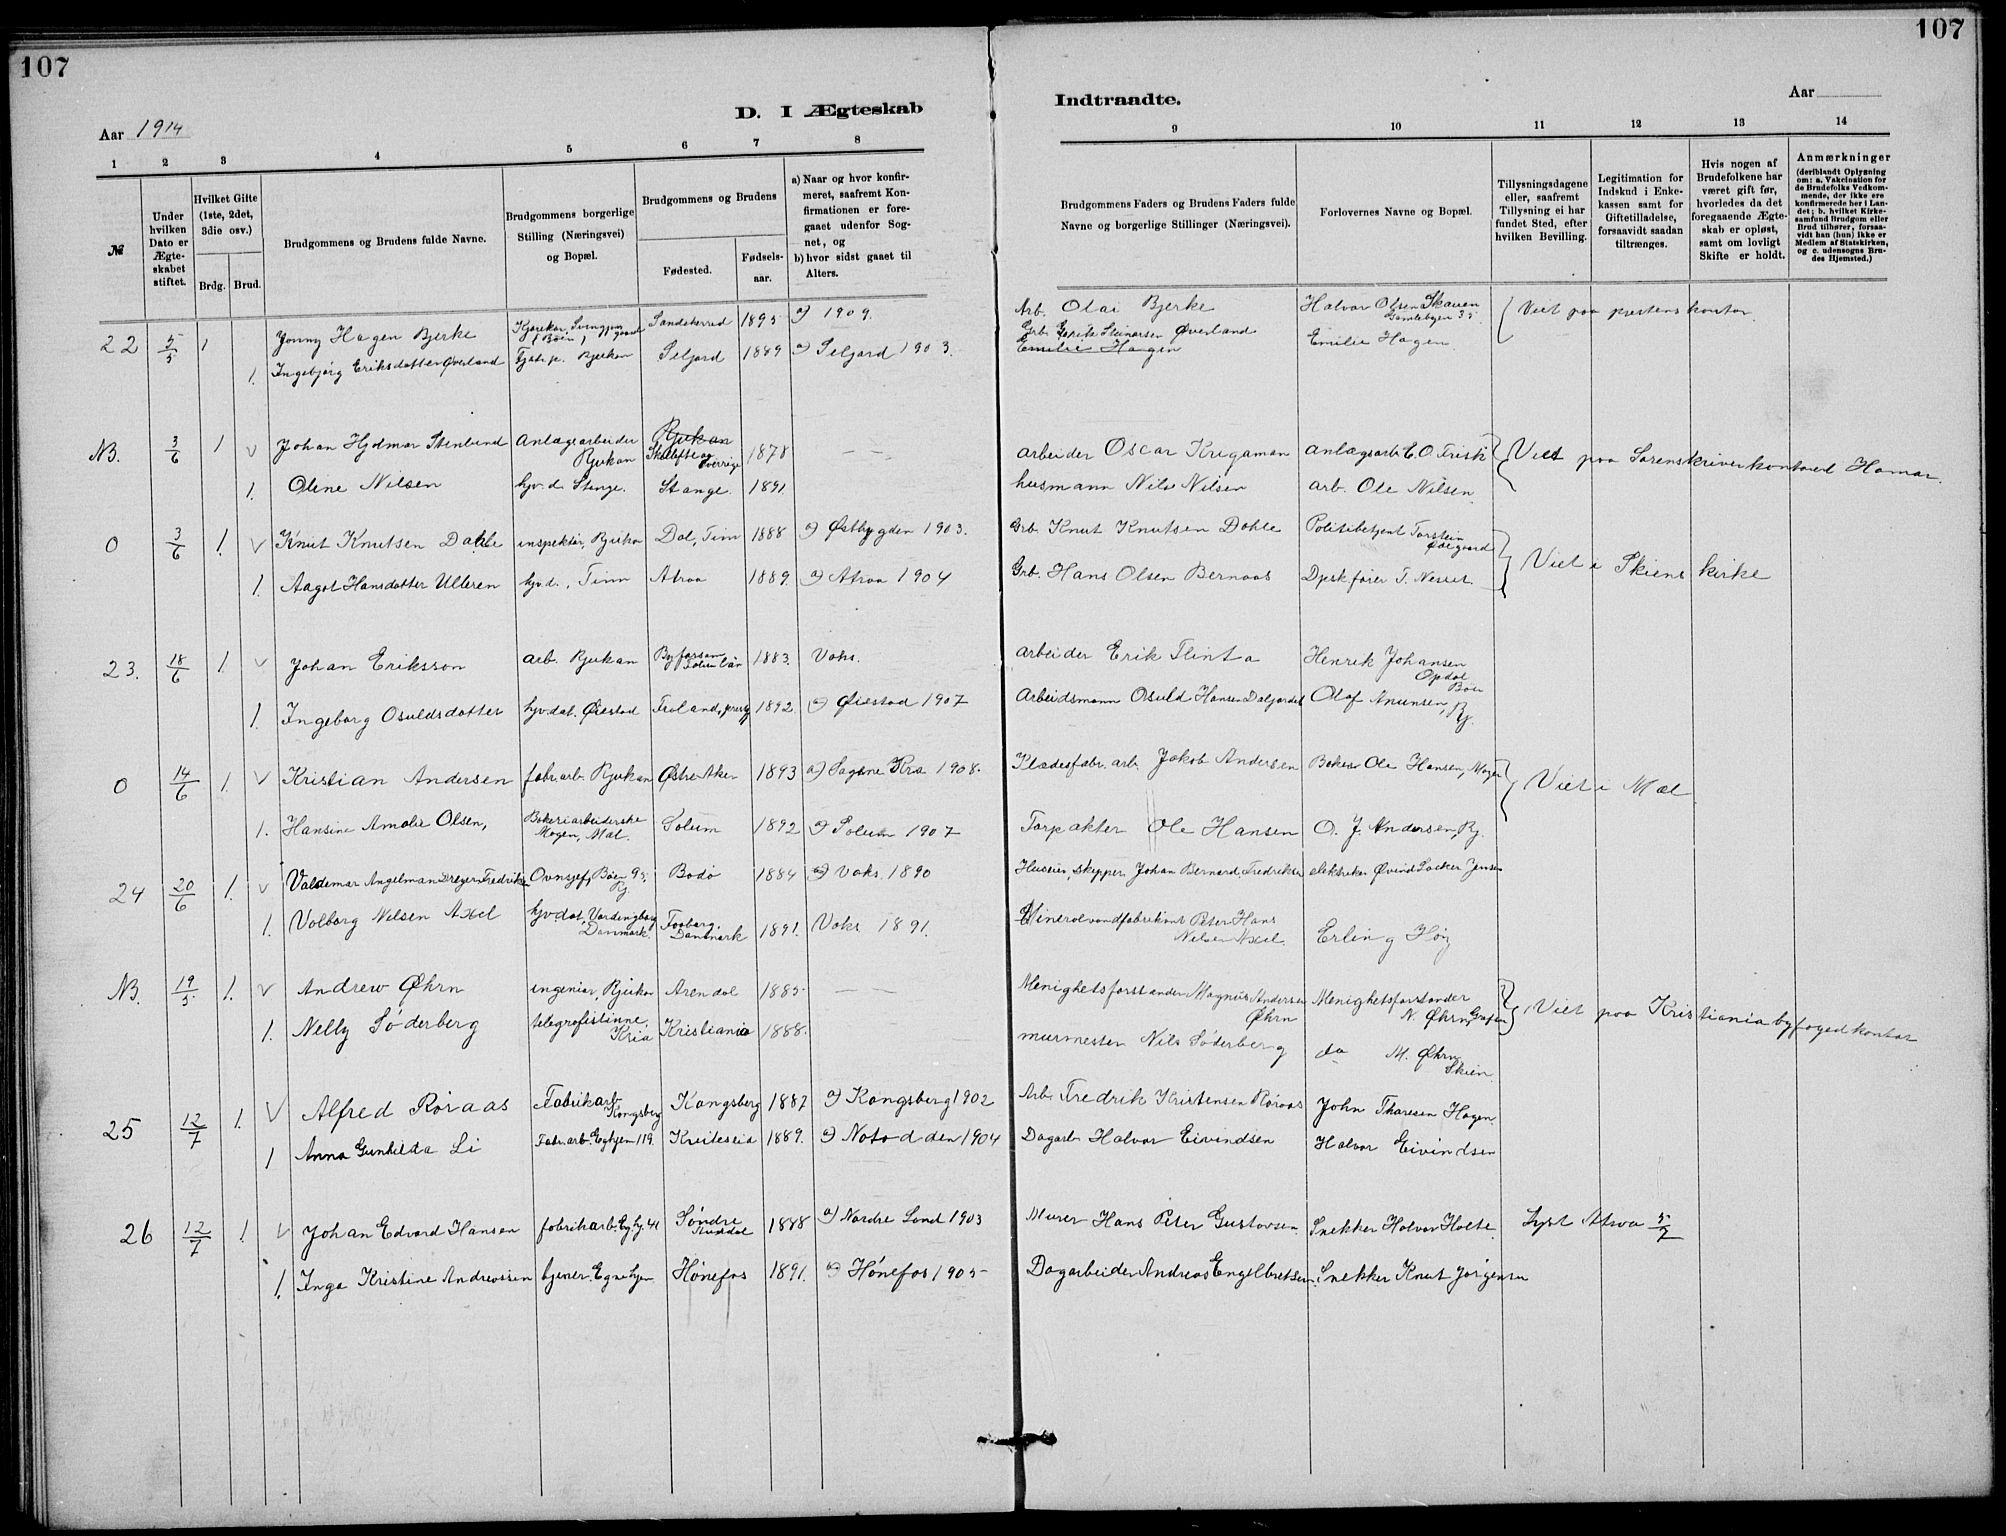 107
107
D. I Ægteskab
Indtraadte.
Aar 1914
Aar
1 2 3 4 5 6 7 8
9 10 11 12 13 14
№
Under hvilken Dato er Ægteskabet stiftet.
Hvilket Gifte (1ste, 2det, 3die osv.)
Brdg. Brud.
Brudgommens og Brudens fulde Navne.
Brudgommens borgerlige Stilling (Næringsvei) og Bopæl.
Brudgommens og Brudens
Fødested.
Fødselsaar.
a) Naar og hvor konfirmeret, saafremt Konfirmationen er foregaaet udenfor Sognet, og
b) hvor sidst gaaet til Alters.
Brudgommens Faders og Brudens Faders fulde Navne og borgerlige Stillinger (Næringsvei).
Forlovernes Navne og Bopæl.
Tillysningsdagene eller, saafremt Tillysning ei har fundet Sted, efter hvilken Bevilling.
Legitimation for Indskud i Enkekassen samt for Giftetilladelse, forsaavidt saadan tiltrænges.
Hvis nogen af Brudefolkene har været gift før, hvorledes da det foregaaende Ægteskab er opløst, samt om lovligt Skifte er holdt.
Anmærkninger (deriblandt Oplysning om: a. Vakcination for de Brudefolks Vedkommende, der ikke ere konfirmerede her i Landet; b. hvilket Kirkesamfund Brudgom eller Brud tilhører, forsaavidt han (hun) ikke er Medlem af Statskirken, og c. udensogns Brudes Hjemsted.)
22 5/5 1 Jonny Hagen Bjerke Sandeherred 1895 a) 1909. Arb. Olai Bjerke Halvor Olsen Skauen Gamlebyen 35 Viet paa prestens kontor
1. Ingebjørg Eriksdatter Øverland Tjst.p. Rjukan Seljord 1889 a) Seljord 1903. Grb. Steinarsen Øverland Emilie Hagen
Emilie Hagen
NB. 3/6 1 v Johan Hjalmar Stenlund Anlægsarbeider Rjukan Rjukan Skellefteå Sverrige 1878 — — arbeider Oscar Krigsman anlægsarb. E. O. Frisk Viet paa Sorenskriverkontoret Hamar.
1. Oline Nilsen hjv.d. Stange. Stange. 1891. husmann Nils Nilsen arb. Ole Nilsen
0 3/6 1. v Knut Knutsen Dahle inspektør, Rjukan Dal, Tinn 1888 a) Østbygden 1903. Grb. Knut Knutsen Dahle Politibetjent Torstein Ødegaard Viet i Skiens kirke
1. Aagot Hansdatter Ulleren hjv.d., Tinn Atraa 1889. a) Atraa 1904 Grb. Hans Olsen Bernaas Dpsk.fører T. Nesset
23. 18/6 1. v Johan Eriksson arb. Rjukan 1883. Vaks. arbeider Erik Flinta Henrik Johansen Opdal Böen
1. Ingeborg Osuldsdatter hjv.dat. Øiestad Froland, prestg. 1892. a) Øiestad 1907 Arbeidsmann Osuld Hansen Olaf Anunsen, Rj.
0 14/6 1. v Kristian Andersen fabr.arb. Rjukan Østre Aker 1893 a) Sagene Kra 1908. Klædesfabr. arb. Jakob Andersen Baker Ole Hansen, Mogen Viet i Mæl
1. Hansine Amalie Olsen, Bakeriarbeiderske Mogen, Mæl. Solum 1892 a) Solum 1907 Forpakter Ole Hansen O. J. Andersen, Rj.
24 20/6 1. v Valdemar Angelman Dreyer Fredriksen Ovnsjef, Bøen 95, Rj. Bodö 1884 a) Vaks. 1890 Huseier, skipper Johan Bernard Fredriksen elektriker Øivind Jensen
1. Valborg Nilsen Axel hjv.dat, Vordingborg Danmark. Faaborg. Danmark 1891. Vaks 1891. Mineralvandfabrikant Peter Hans Nilsen Axel. Erling Høy
NB. 19/5 1. v Andrew Øhrn ingeniør, Rjukan Arendal 1885 — — Menighetsforstander Magnus Andersen Øhrn Menighetsforstander N. Øhrn, Viet paa Kristiania byfogedkontor
1. Nelly Söderberg telegrafistinne, Kria Kristiania 1888. murmester Nils Söderberg do M. Øhrn Skien.
25 12/7 1. v Alfred Roraas Fabrikarb. Kongsberg Kongsberg 1887 a) Kongsberg 1902 Arb. Fredrik Kristensen Röraas John Thoresen Hagen.
1 Anna Gunhilda Li Fabr.arb. Eghjem 119. Kviteseid 1889. a) Notodden 1904 Dagarb. Halvor Eivindsen Halvor Eivindsen
26 12/7 1. v Johan Edvard Hansen fabrikarb. Eg.hj. 41 Söndre 1888 a) Nordre Land 1903 Murer Hans Peter Gustavsen Snekker Halvor Holte. Lyst Atraa 5/7
1. Inga Kristine Andreassen tjener. Egnehjem Hönefos 1891. a) Hönefos 1905 Dagarbeider Andreas Engelbretsen Snekker Knut Jörgensen